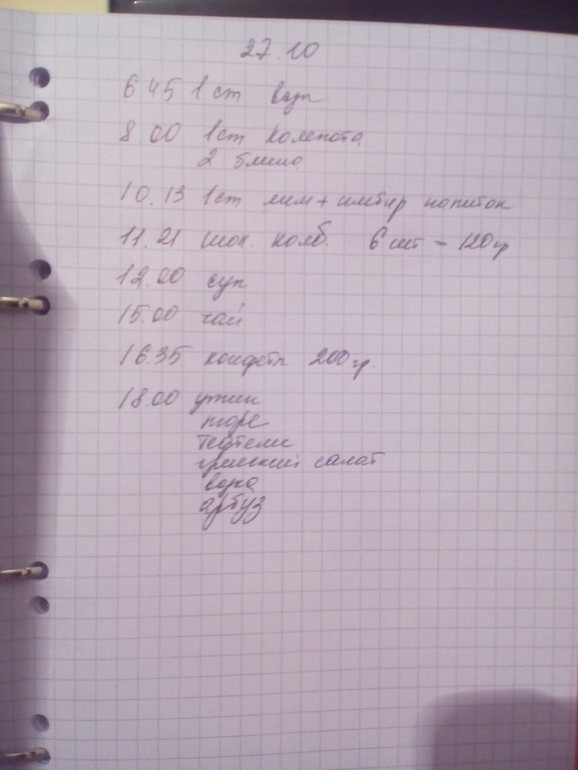 27.10
6 45 1 ст воды
8.00 1 ст компота
2 блина
10.13 1 ст лим + имбир напиток
11.21 шок. колб. 6 шт - 120 гр
12.00 суп
15.00 чай
16.35 конфеты 200 гр.
18.00 ужин
пюре
тефтели
греческий салат
вода
арбуз